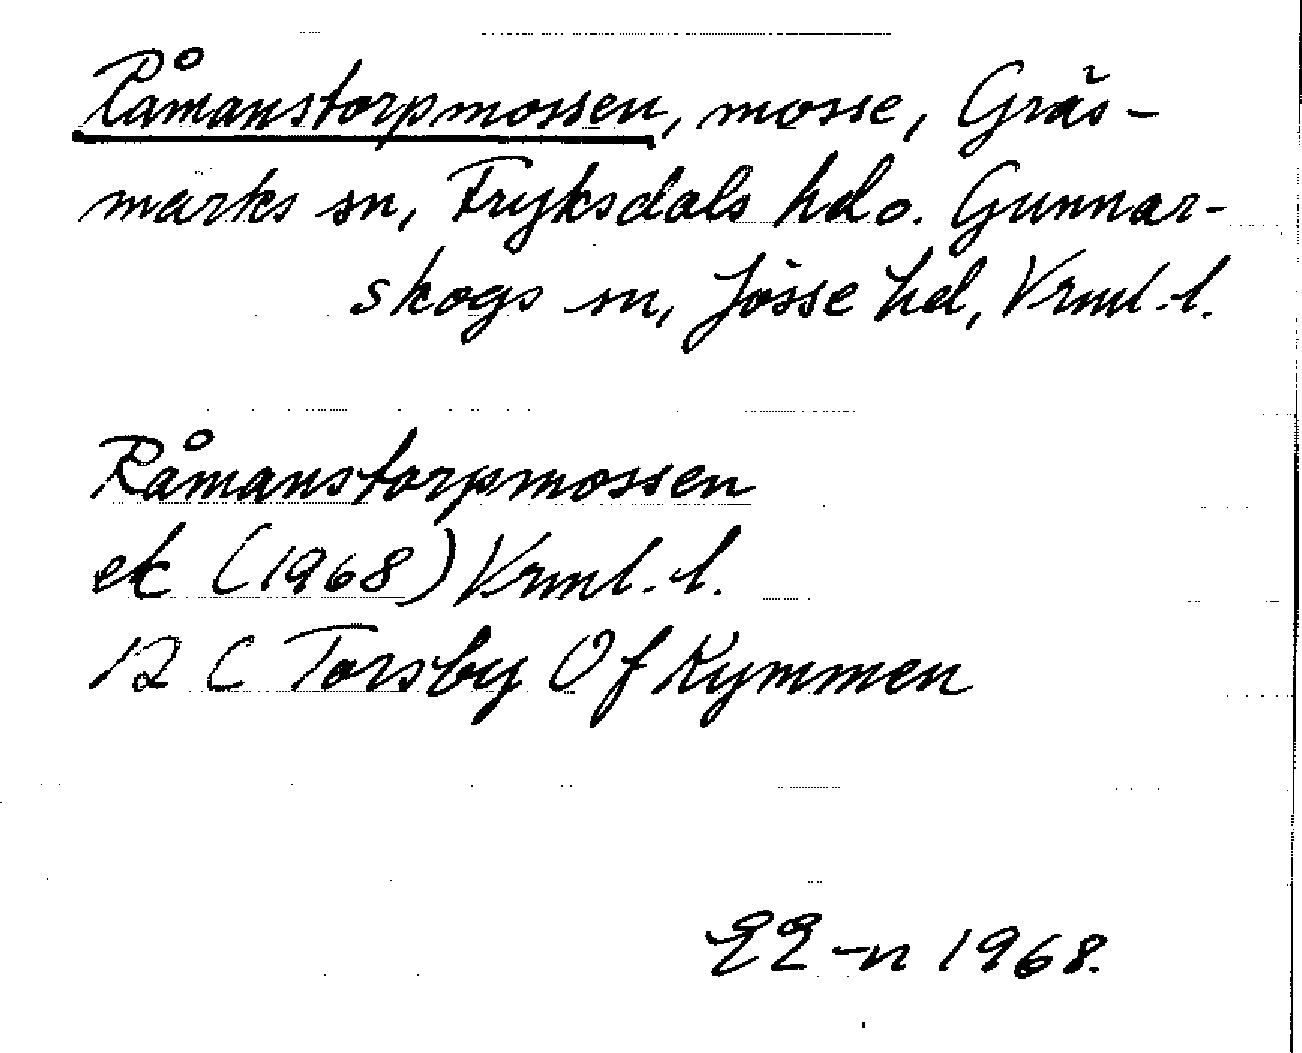 Råmanstorpmossen, mosse, Gräs-
marks sn, Fryksdals hd o. Gunnar-
skogs sn, Jösse hd, Vrml. l.
Råmanstorpmossen
ek (1968) Vrml. l.
12 C Torsby 0 f Kymmen
EE-n 1968.